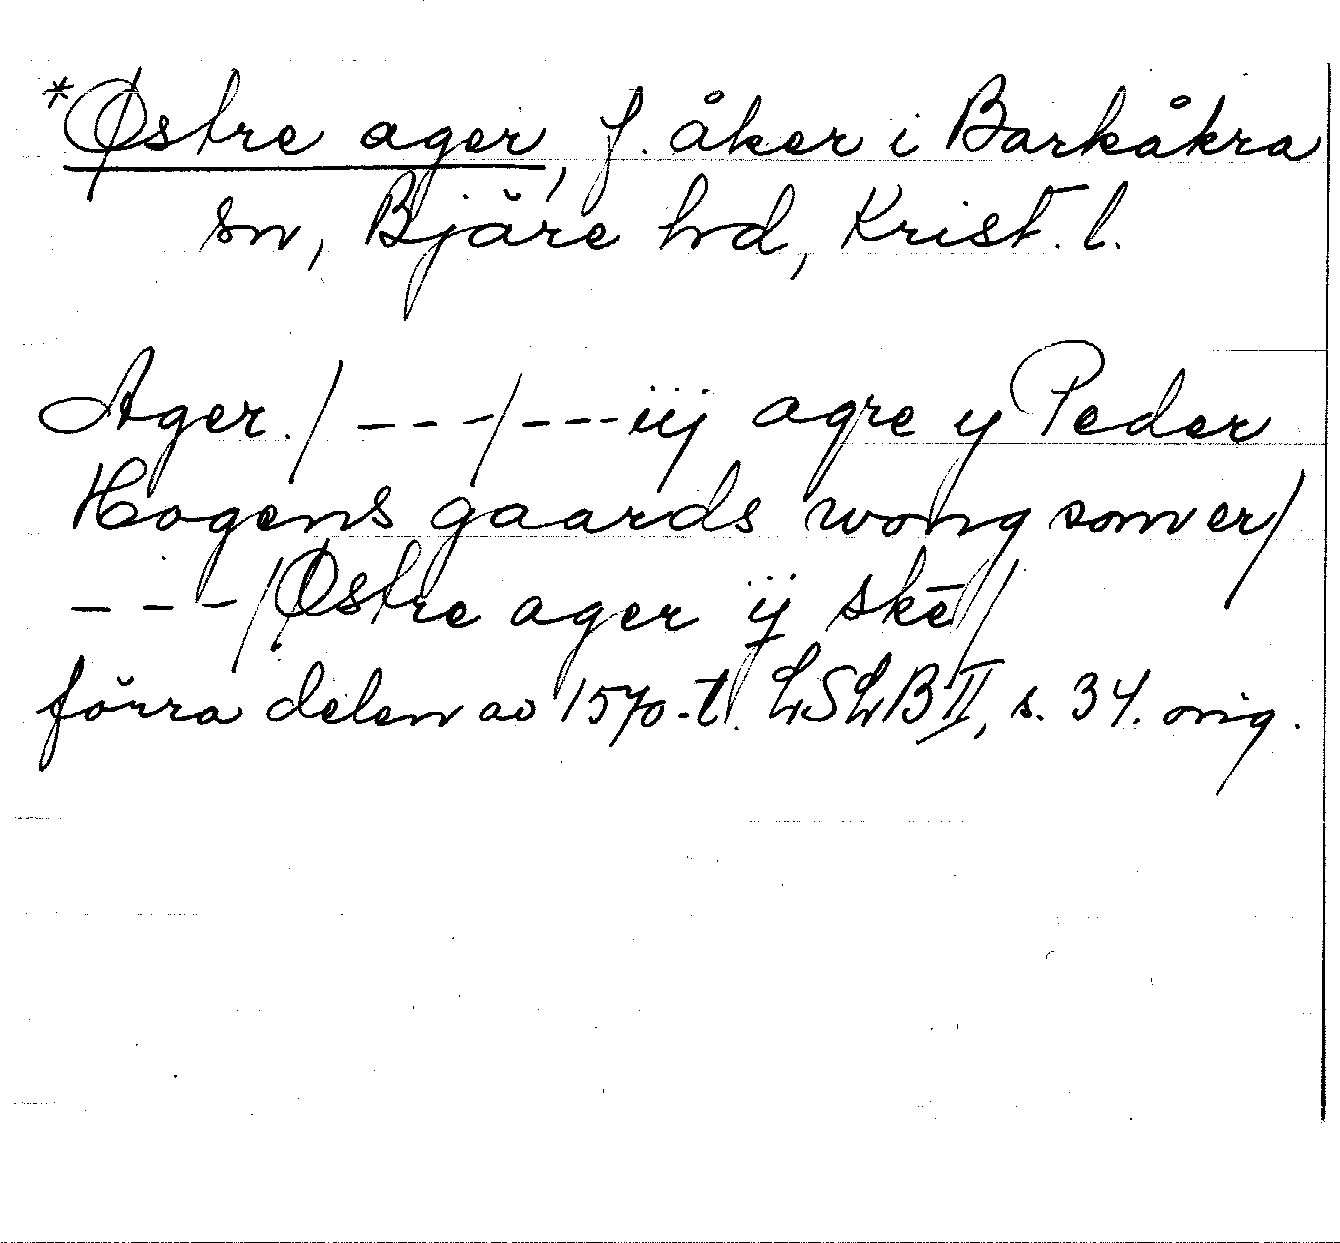 *Østre ager, f. åker i Barkåkra
sn, Bjäre hd, Krist. l.
Ager./ --- / --- iij agre y Peder
Hagens gaards wong som er/
--- /Østre ager ij skē/
förra delen av 1570-t. LSLB II, s. 34. orig.